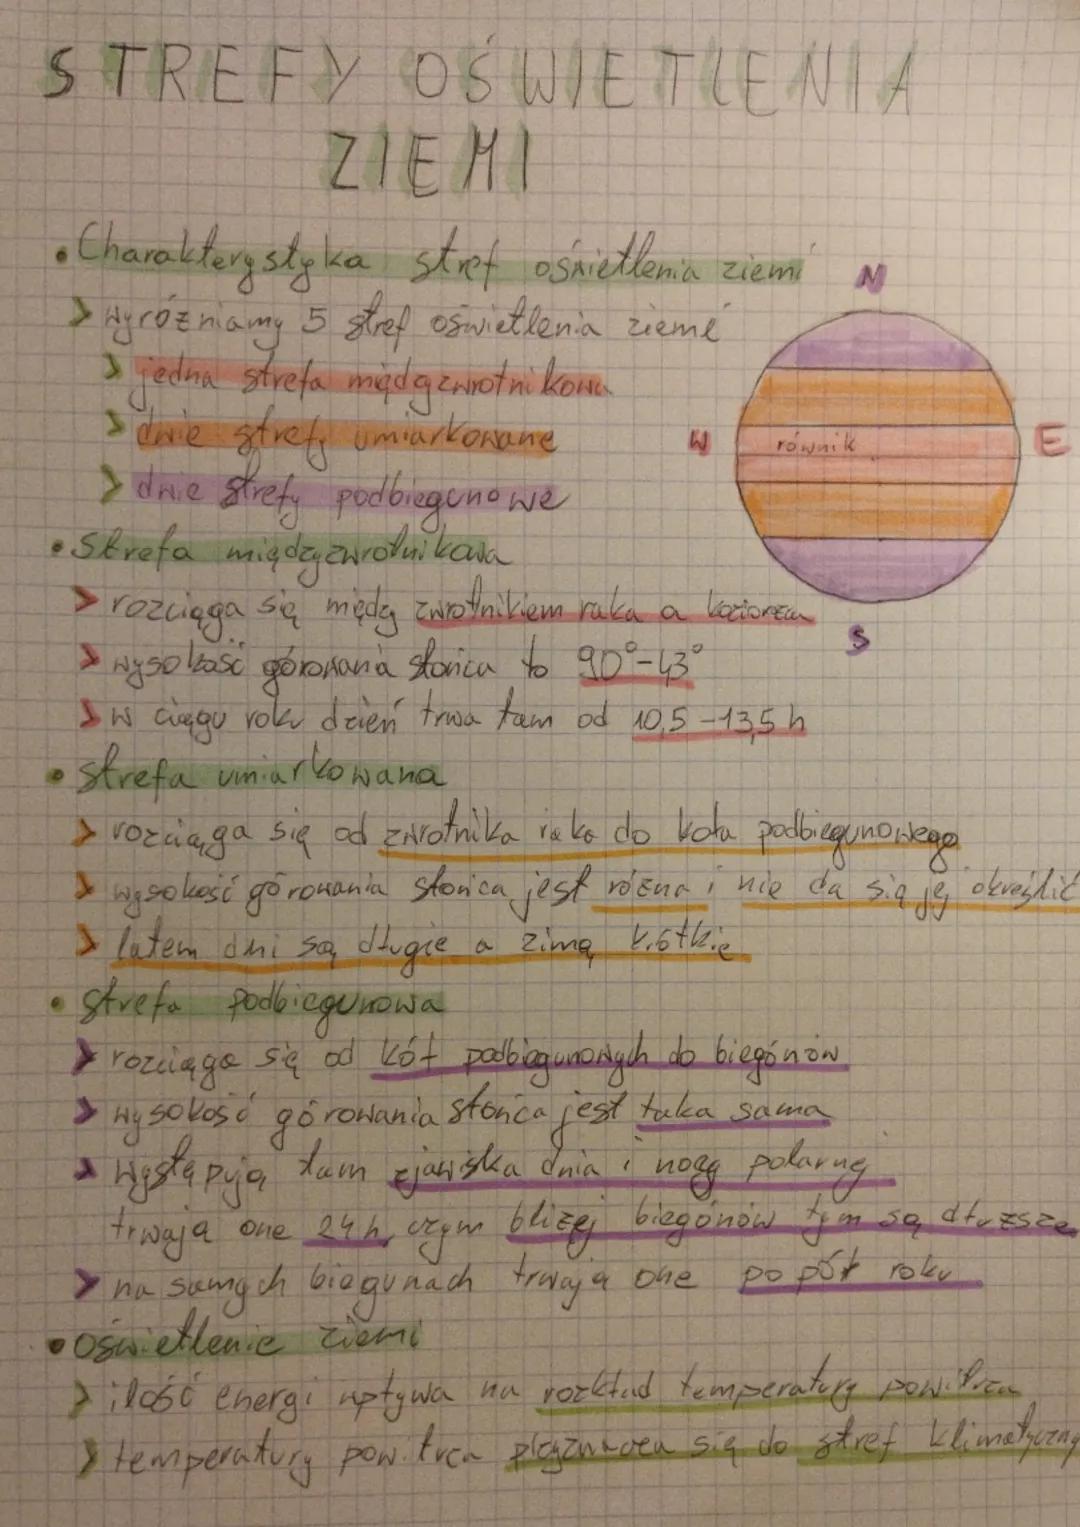 STREFY OŚWIETLENIA
ZIEMI
• Charakterystyka stref oświetlenia ziemi
> wyróżniamy 5 stref oświetlenia zieme
> jedna strefa międzyzwrotnikowa
> dwie strefy umiarkowane
> dwie strefy podbiegunowe
N
W
równik
E
S
• Strefa międzyzwrotnikowa
> rozciąga się między zwrotnikiem raka a
> wysokość górowania słońca to 90°-43°
> w ciągu roku dzień trwa tam od 10,5-13,5 h
• strefa umiarkowana
> rozciąga się od zwrotnika raka do koła podbiegunowego
> wysokość górowania słońca jest różna i nie da się jej określić
> latem dni są długie a zimą krótkie
• strefa podbiegunowa
> rozciąga się od kół podbiegunowych do biegónów
> wysokość górowania słońca jest taka sama
> występują tam zjawiska dnia i nocy polarnej
trwają one 24h, czym bliżej biegónów tym są dłuższe
> na samych biegunach trwają one po pół roku
• oświetlenie ziemi
> ilość energi wpływa na rozkład temperatury
> temperatury się do stref